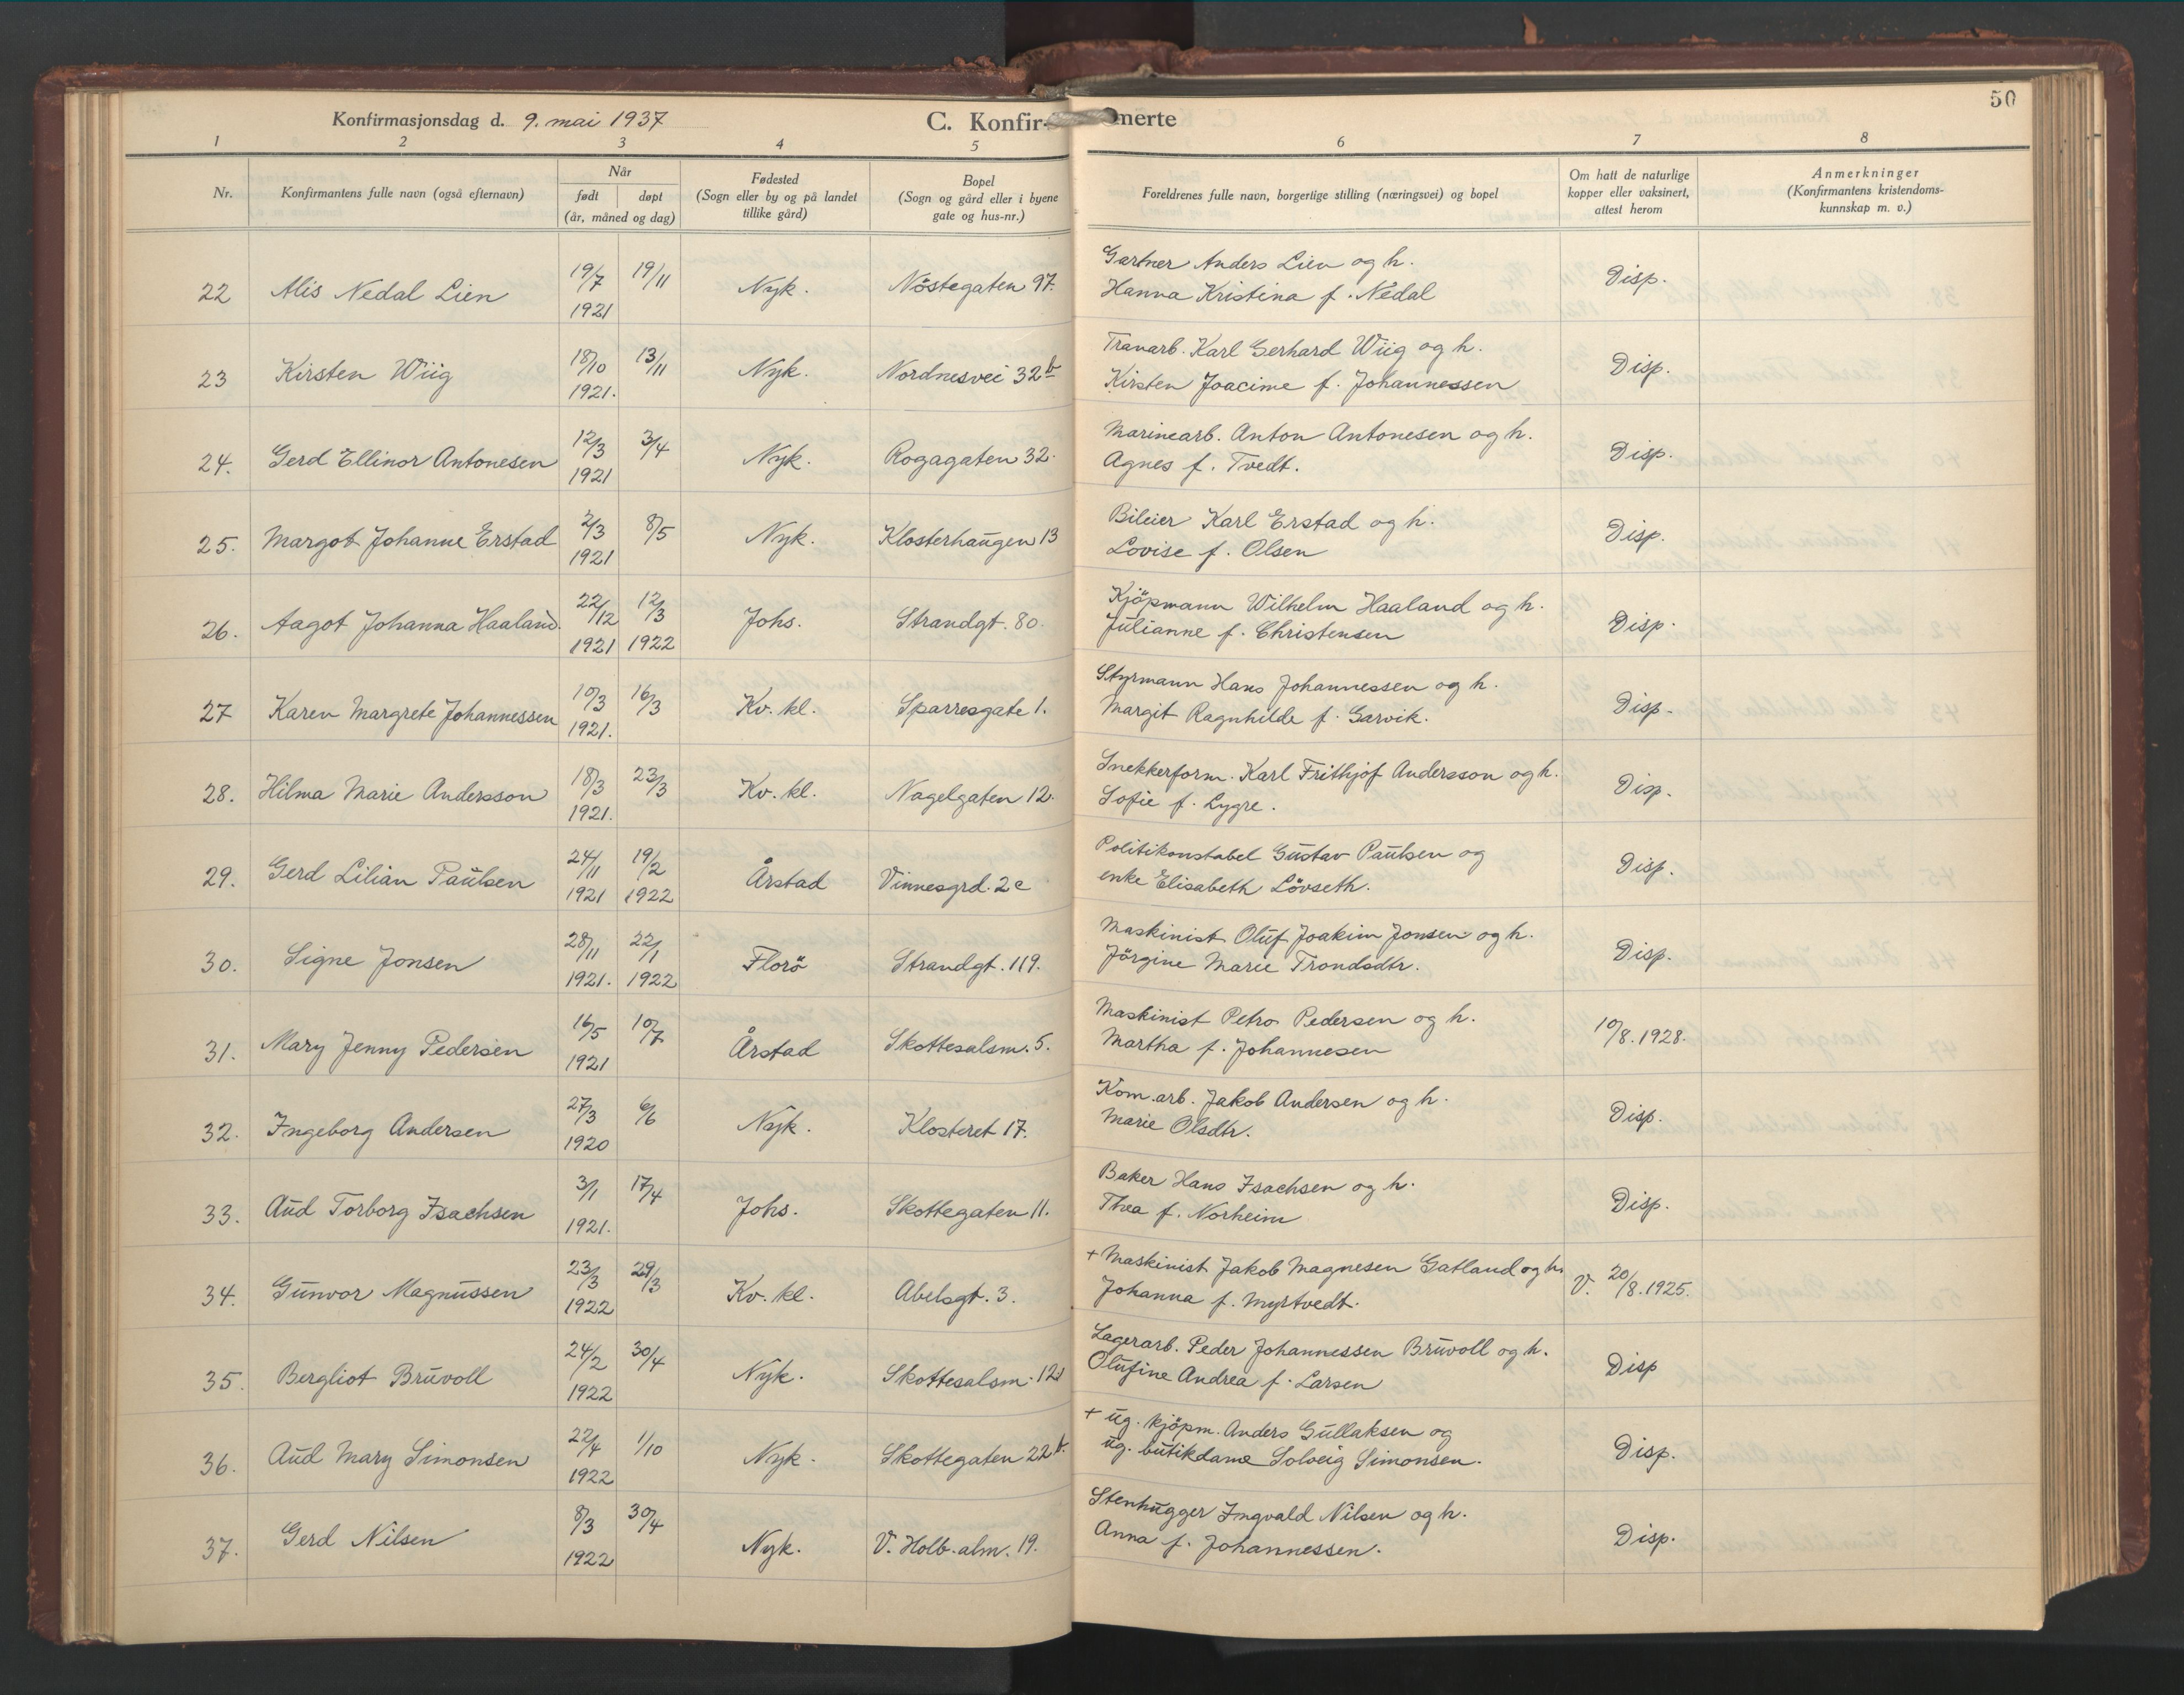 Konfirmasjonsdag d. 9. mai 1937
C. Konfir-
merte
50
1 2 3 4 5 6 7 8
Nr.
Konfirmantens fulle navn (også efternavn)
Når
født døpt
(år, måned og dag)
Fødested
(Sogn eller by og på landet
tillike gård)
Bopel
(Sogn og gård eller i byene
gate og hus-nr.)
Foreldrenes fulle navn, borgerlige stilling (næringsvei) og bopel
Om hatt de naturlige
kopper eller vaksinert,
attest herom
Anmerkninger
(Konfirmantens kristendoms-
kunnskap m. v.)
22 Alis Nedal Lien 19/7 1921 19/11 Nyk. Nöstegaten 97.
Gartner Anders Lien og h.
Hanna Kristina f. Nedal
Disp.
23 Kirsten Wiig 18/10 1921. 13/11 Nyk. Nordnesvei 32b
Tranarb. Karl Gerhard Wiig og h.
Kirsten Joacime f. Johannessen
Disp.
24. Gerd Ellinor Antonesen 12/3 1921 3/4 Nyk. Rogagaten 32.
Marinearb. Anton Antonesen og h.
Agnes f. Tvedt.
Disp.
25. Margot Johanne Erstad 2/3 1921 8/5 Nyk. Klosterhaugen 13
Bileier Karl Erstad og h.
Lovise f. Olsen
Disp.
26. Aagot Johanna Haaland. 22/12 1921 12/3 1922 Johs. Strandgt. 80.
Kjöpmann Wilhelm Haaland og h.
Julianne f. Christensen
Disp.
27 Karen Margrete Johannessen 10/3 1921. 16/3 Kv. kl. Sparresgate 1.
Styrmann Hans Johannessen og h.
Margit Ragnhilde f. Garvik.
Disp.
28. Hilma Marie Andersson 18/3 1921. 23/3 Kv. kl. Nagelgaten 12.
Snekkerform. Karl Frithjof Andersson og h.
Sofie f. Lygre.
Disp.
29. Gerd Lilian Paulsen 24/11 1921 19/2 1922 Årstad Vinnesgrd. 2c
Politikonstabel Gustav Paulsen og
enke Elisabeth Lövseth.
Disp.
30. Signe Jonsen 28/11 1921. 22/1 1922 Florö Strandgt. 119.
Maskinist Oluf Joakim Jonsen og h.
Jörgine Marie Trondsdtr.
Disp.
31. Mary Jenny Pedersen 16/5 1921 10/7 Årstad Skottesalsm. 5.
Maskinist Petro Pedersen og h.
Martha f. Johannesen
10/8. 1928.
32. Ingeborg Andersen 27/3 1920 6/6 Nyk. Klosteret 17.
Kom. arb. Jakob Andersen og h.
Marie Olsdtr.
Disp.
33. Aud Torborg Isachsen 3/1 1921. 17/4 Johs. Skottegaten 11.
Baker Hans Isachsen og h.
Thea f. Norheim
Disp.
34. Gunvor Magnussen 23/3 1922 29/3 Kv. kl. Abelsgt. 3.
+ Maskinist Jakob Magnesen Gatland og h.
Johanna f. Myrtvedt.
V. 20/8. 1925.
35. Bergliot Bruvoll 24/2 1922 30/4 Nyk. Skottesalsm.
Lagerarb. Peder Johannessen Bruvoll og h.
Olufine Andrea f. Larsen
Disp
36. Aud Mary Simonsen 22/4 1922 1/10 Nyk. Skottegaten 22b.
+ ug. kjöpm. Anders Gullaksen og
ug. butikdame Solveig Simonsen.
Disp.
37. Gerd Nilsen 8/3 1922 30/4 Nyk. V. Holb. alm. 19.
Stenhugger Ingvald Nilsen og h.
Anna f. Johannessen.
Disp.